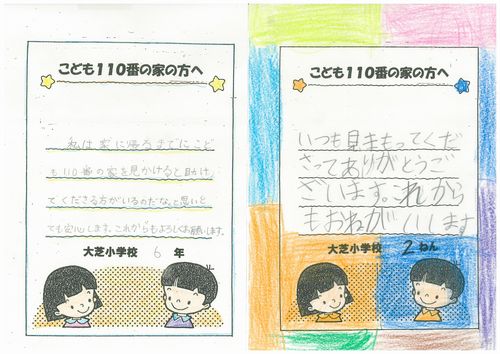 こども110番の家の方へ
私は家に帰るまでにこど
も110番の家を見かけると助け
てくださる方がいるのだな。と思いと
ても安心します。これからもよろしくお願います。
大芝小学校 6 年
こども110番の家の方へ
いつも見まもってくだ
さってありがとうご
ざいます。これから
もおねがいします
大芝小学校 2 ねん